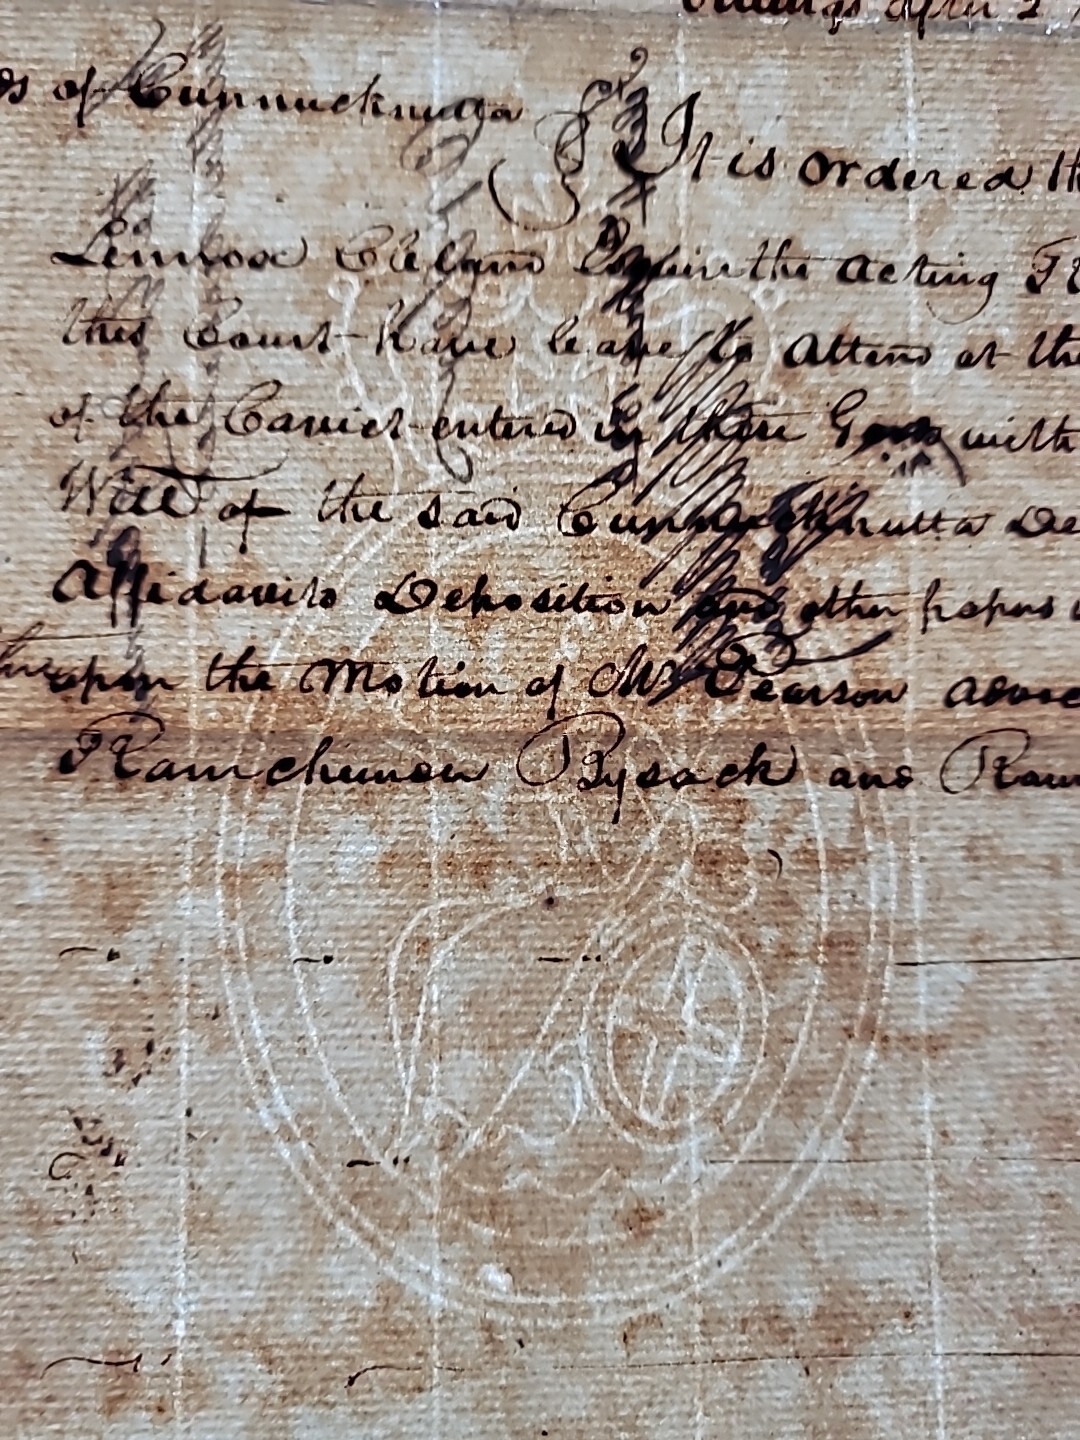 of Cunnucknutta
It is ordered
Lennox Cleland Esquire the acting
this Court have leave to attend at the
of the Caviet entered in these Goods with
Will of the said Cunnucknutta De
Affidavits Deposition and other papers
upon the Motion of Mr Pearson advoc
Ramchunder Bysack and Ram